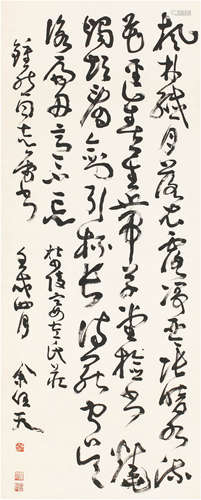 風林纖月落衣露淨琴張暗水流
花徑春星帶草堂檢書燒
燭短看劍引杯長詩罷聞吳
詠扁舟意不忘 杜陵宴左氏莊
同志屬書 壬戌四月 余任天